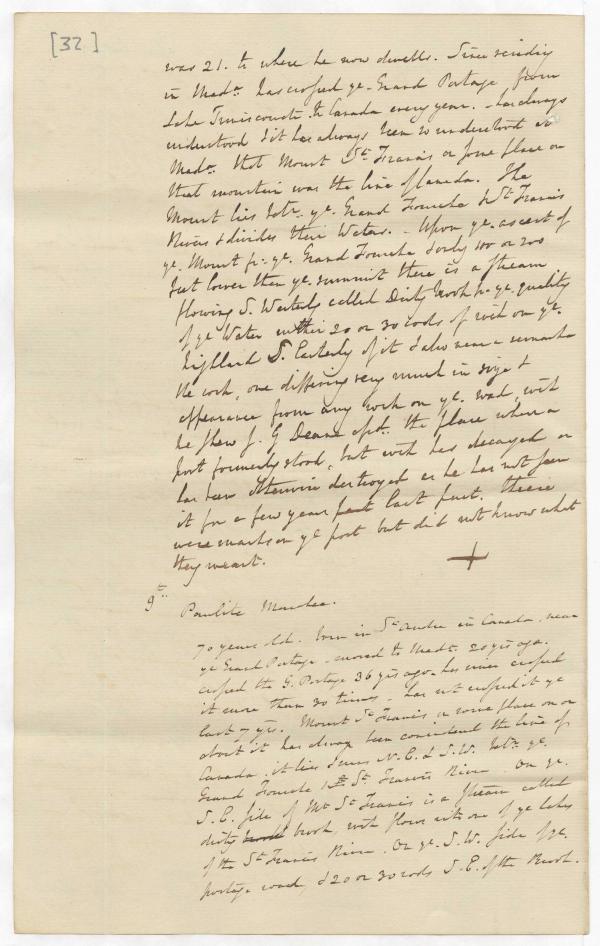 [32]
was 21. to where he now dwells. Since residing
in Mada. has crossed ye. Grand Portage from
Lake Timiscouata to Canada every year. - has always
understood & it has always been so understood at
Mada. that Mount St. Francis or some place on
that mountain was the line of Canada. The
Mount lies betw. ye. Grand Fourche & St. Francis
Rivers & divides their Waters. - Upon ye. ascent of
ye. Mount fr. ye. Grand Fourche & only 100 or 200
feet lower than ye. summit there is a stream
flowing S. Westerly called Dirty brook fr. ye. quality
of ye Water within 20 or 30 rods of wich on ye.
highland S. Easterly of it & also near a remarka
ble rock, one differing very much in size &
appearance from any rock on ye. road, wich
he shew J. G Deane Esqr. the place where a
post formerly stood, but wich has decayed or
has been otherwise destroyed as he has not seen
it for a few years past last past. there
were marks on ye post but did not know what
they meant.
+
9th.
Paulite
70 years old. born in St. Andre in Canada, near
ye Grand Portage - moved to Mada. 20 yrs ago.
crossed the G. Portage 36 yrs ago - has since crossed
it more than 30 times - has not crossed it ye
last 7 yrs. Mount St. Francis, or some place on or
about it has always been considered the line of
Canada. it lies N.E. & S.W. betn. ye.
Grand Fourche & St. Francis River. On ye.
S.E. side of Mt St. Francis is a stream called
dirty brook, wich flows into one of ye lakes
of the St. Francis River. On ye. S.W. side of ye.
portage road, & 20 or 30 rods S.E. of the Brook.